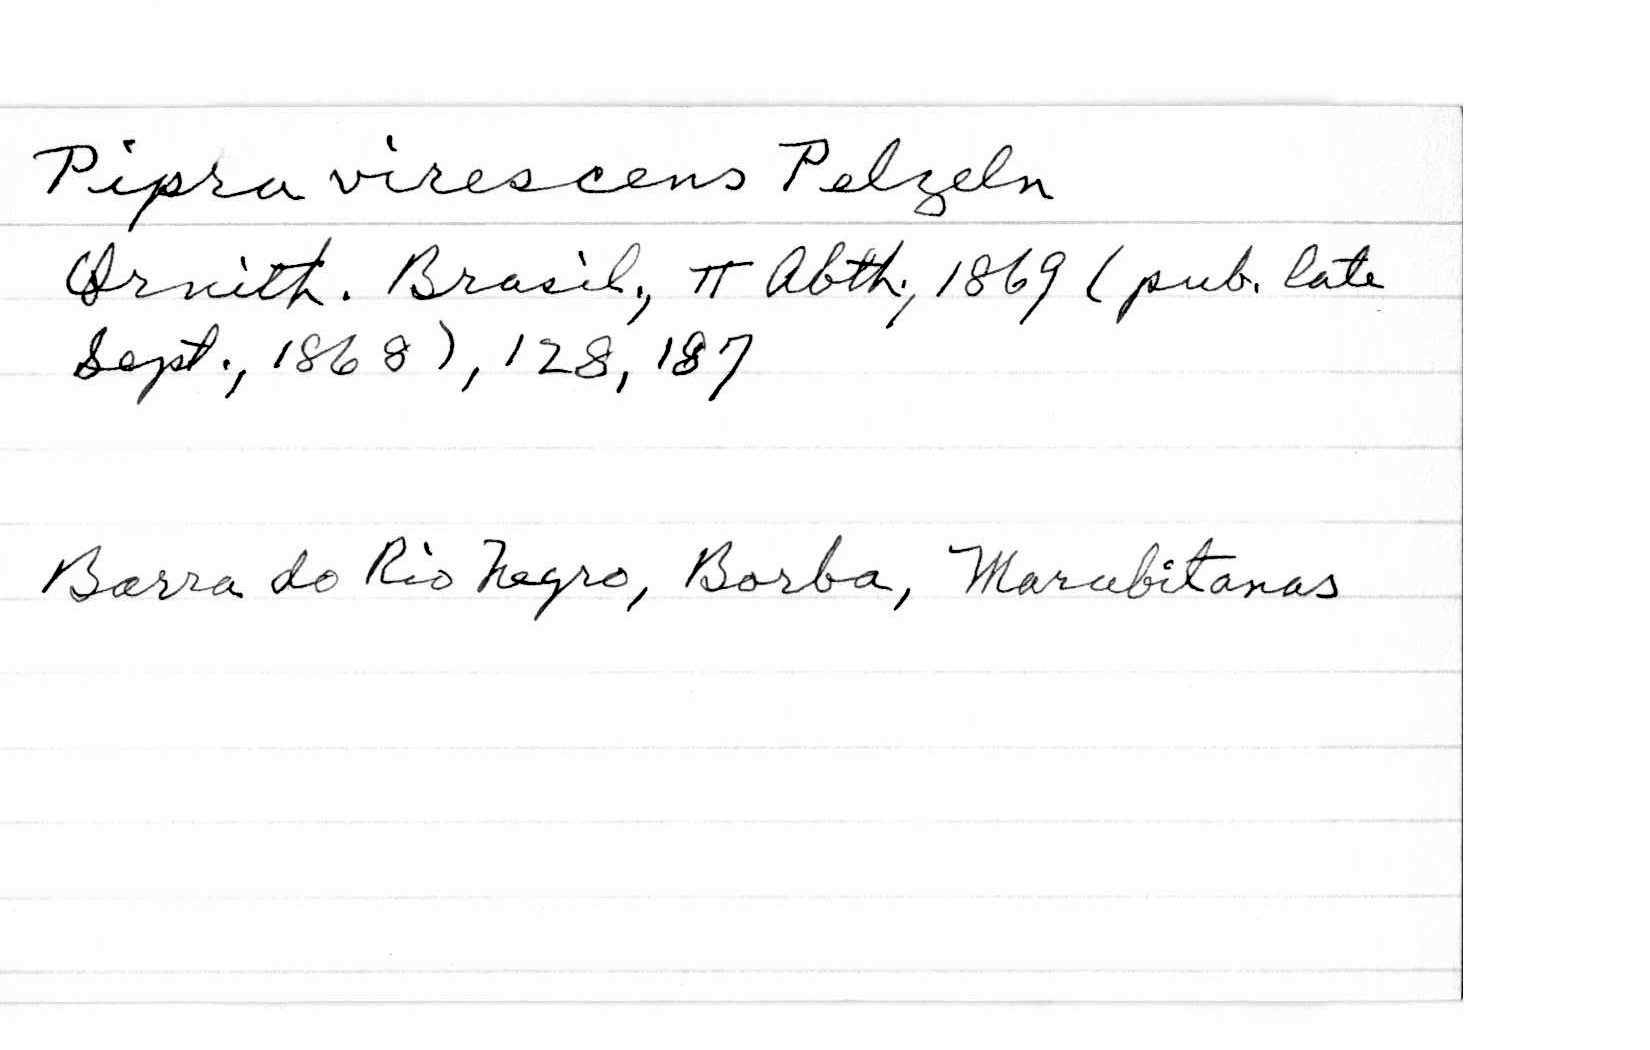 Pipra virescens Pelzeln
Ornith. Brasil., II Abth., 1869 (pub. late
Sept., 1868), 128, 187
Barra do Rio Negro, Borba, Marabitanas